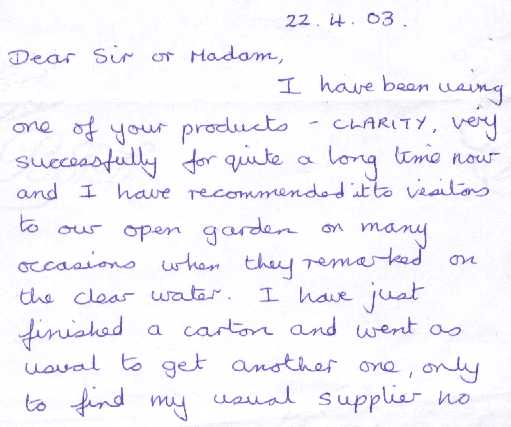 22.4.03.
Dear Sir or Madam,
I have been using
one of your products - CLARITY, very
successfully for quite a long time now
and I have recommended it to visitors
to our open garden on many
occasions when they remarked on
the clear water. I have just
finished a carton and went as
usual to get another one, only
to find my usual supplier no